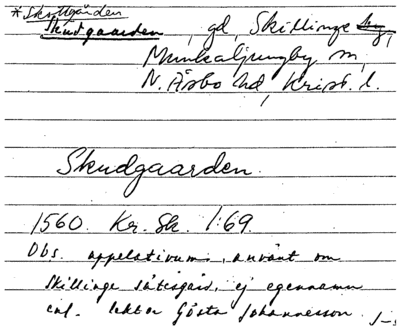 *Skottgården
Skudgaarden, gd, Skillinge by,
Munkaljungby sn,
N. Åsbo hd, Krist. l.
Skudgaarden.
1560. Kr. Sk. 1:69.
Obs. appelativum, använt om
Skillinge sätesgård, ej egennamn
enl. lektor Gösta Johannesson.